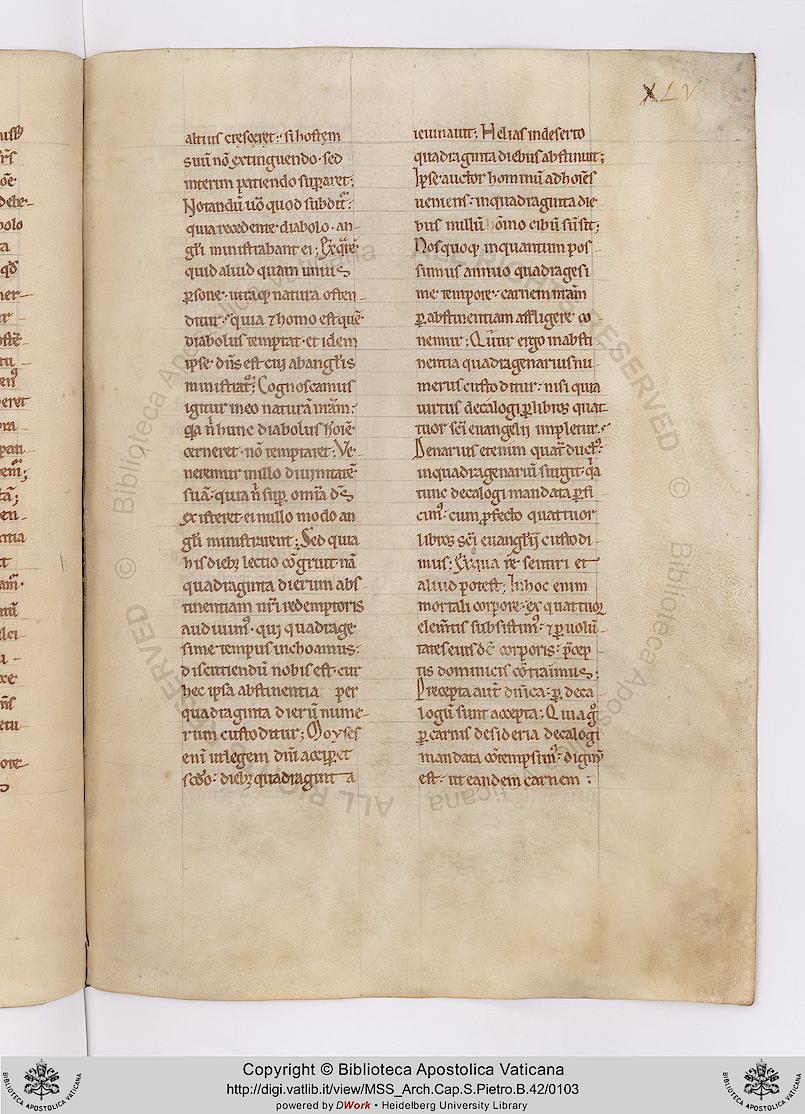 XLV
altius cresceret: si hostem
suū nō extinguendo· sed
interim patiendo supararet;
Notandū u̅o quod subdit̅:
quia recedente diabolo· an-
gl̅i ministrabant ei; Ex q̅ re
quid aliud quam unius
ꝑsone· utraq; natura osten-
ditur: quia ⁊ homo est quē
diabolus temptat· et idem
ipse dn̅s est cui ab angl̅is
ministrat̅; Cognoscamus
igitur in eo naturā nr̅am:
q̅a n̅ hunc diabolus hoīe
cerneret· nō temptaret; Ve-
neremur in illo diuinitatē
suā· quia n̅ suꝑ om̅ia ds̅
existeret· ei nullo modo an
gl̅i ministrarent; Sed quia
his dieb; lectio cōgruit· nā
quadraginta dierum abs-
tinentiam nr̅i redemptoris
audiuim⁹· qui quadrage
sime tempus inchoamus:
discutiendū nobis est· cur
hec ipsa abstinentia per
quadraginta dierū nume-
rum custoditur; Moyses
eni̅ ut legem dm̅ acciꝑet
sc̅do· dieb; quadragint a
ieiunauit; Helias in deserto
quadraginta diebus abstinuit;
Ipse auctor hominū ad hoīes
ueniens· in quadraginta die-
bus nullū om̅ino cibū sūsit;
Nos quoq; inquantum pos-
sumus annuo quadragesi
me tempore· carnem nr̅am
ꝑ abstinentiam affligere co-
nemur; Cur ergo in absti
nentia quadragenarius nu-
merus custoditur: nisi quia
uirtus decalogi ꝑ libros quat-
tuor sc̅i euangelii impletur;
Denarius etenim quat̅ duct⁹
in quadragenariū surgit· q̅a
tunc decalogi mandata ꝑfi
cim⁹· cum ꝓfecto quattuor
libros sc̅i euangl̅ij custodi-
mus; Ex qua re sentiri et
aliud potest; In hoc enim
mortali corpore· ex quattuor
elem̅tis subsistim⁹· ⁊ ꝑ uolū-
tates eius de̅ corporis· p̅cep-
tis dominicis cōtraimus;
Precepta aut̅ dn̅ica· ꝑ deca-
logū sunt accepta; Quia g̊
ꝑ carnis desideria decalogi
mandata cōtempsim⁹· dignū
est· ut eandem carnem
Copyright © Biblioteca Apostolica Vaticana
http://digi.vatlib.it/view/MSS_Arch.Cap.S.Pietro.B.42/0103
powered by DWork • Heidelberg University Library